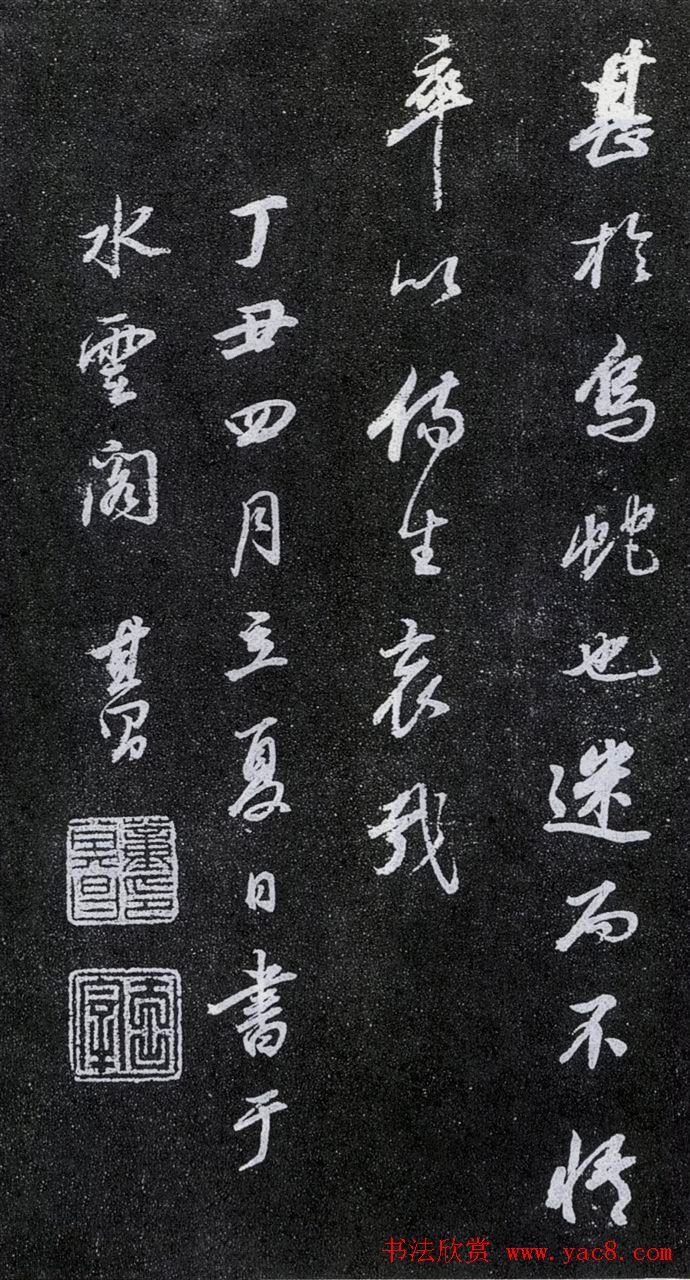 甚於烏蛇也迷而不悟
率以傷生哀哉
丁丑四月立夏日書于
水雲閣 其昌
董其昌印
书法欣赏 www.yac8.com